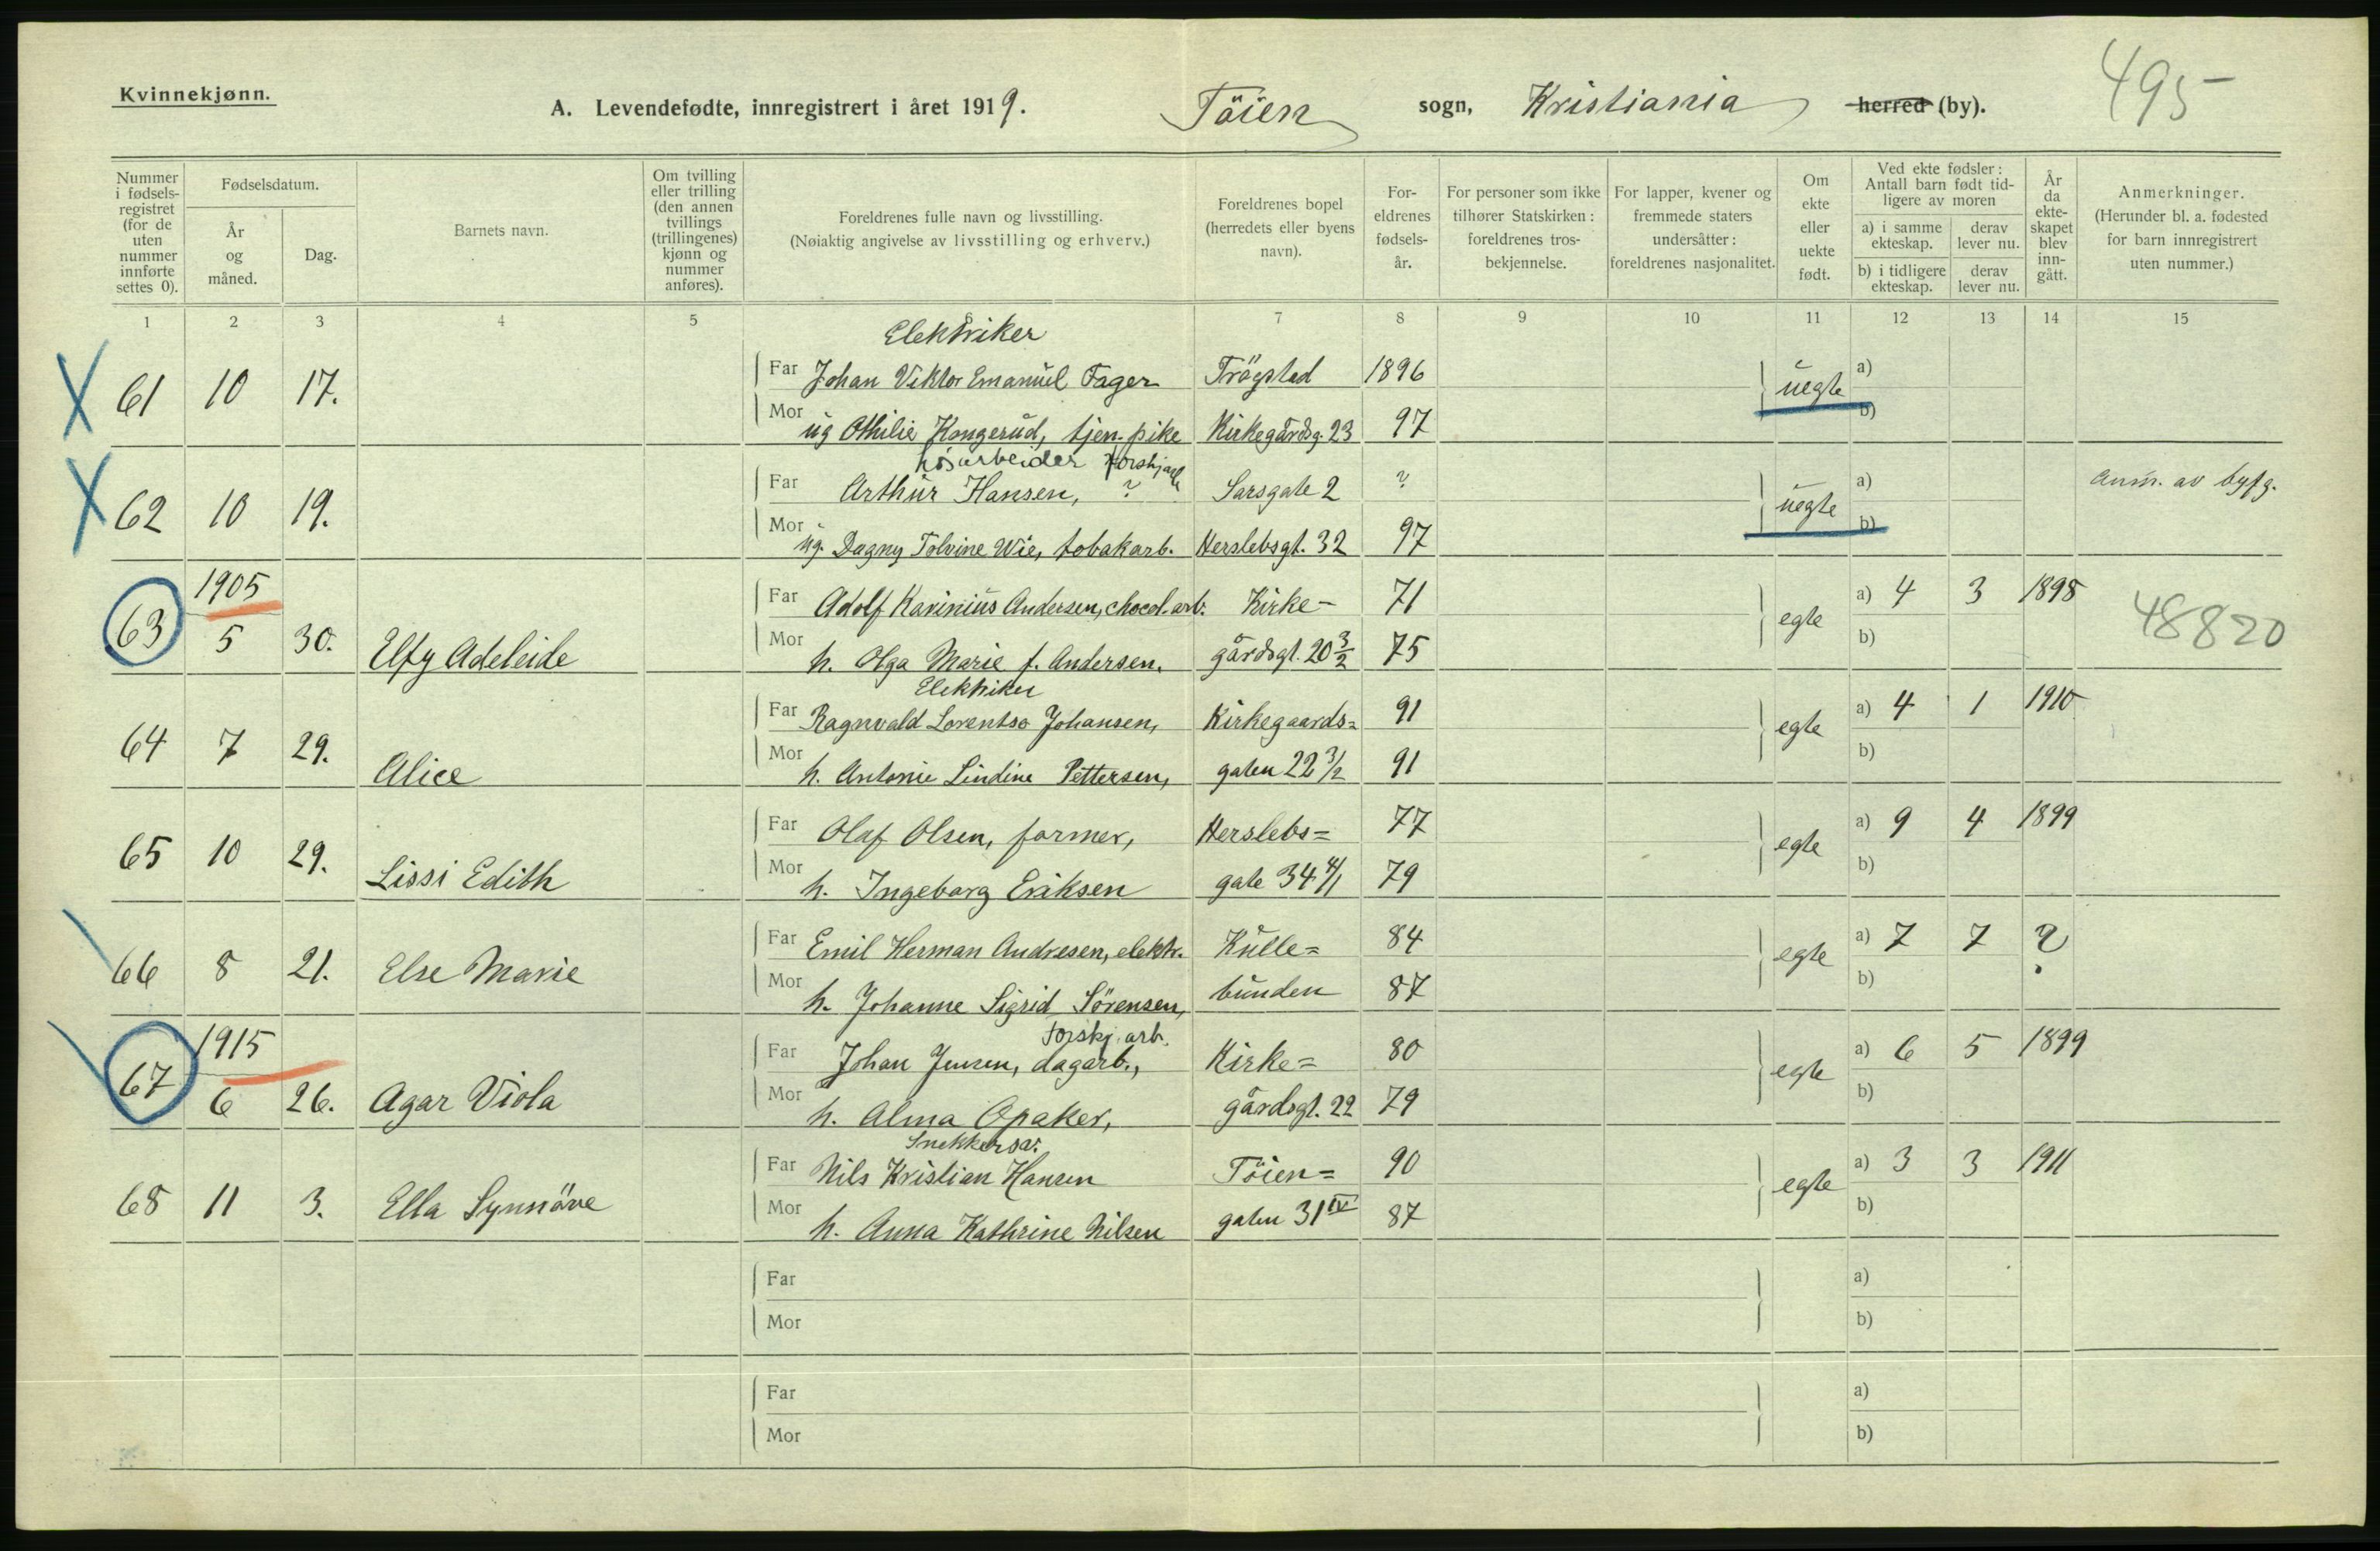 Kvinnekjønn.
A. Levendefødte, innregistrert i året 1919. Töien sogn, Kristiania herred (by). 495
Nummer i fødsels- registret (for de uten nummer innførte settes 0).
Fødselsdatum.
År og måned.
Dag.
Barnets navn.
Om tvilling eller trilling (den annen tvillings (trillingenes) kjønn og nummer anføres).
Foreldrenes fulle navn og livsstilling.
(Nøiaktig angivelse av livsstilling og erhverv.)
Foreldrenes bopel (herredets eller byens navn).
For- eldrenes fødsels- år.
For personer som ikke tilhører Statskirken: foreldrenes tros- bekjennelse.
For lapper, kvener og fremmede staters undersåtter: foreldrenes nasjonalitet.
Om ekte eller uekte født.
Ved ekte fødsler: Antall barn født tid- ligere av moren
a) i samme ekteskap.
derav lever nu.
b) i tidligere ekteskap.
derav lever nu.
År da ekte- skapet blev inn- gått.
Anmerkninger.
(Herunder bl. a. fødested for barn innregistrert uten nummer.)
1 2 3 4 5 6 7 8 9 10 11 12 13 14 15
Elektriker
X 61 10 17. Far Johan Viktor Emanuel Fager Trögstad 1896 uegte a)
Mor ug Othilie Kongerud, tjen. pike Kirkegårdsg. 23 97 b)
X 62 10 19. Far Arthur Hansen, ? Sarsgate 2 ? uegte a) anm. av byfg.
Mor ug. Dagny Tolvine Wie, tobakarb. Herslebsgt. 32 97 b)
1905
63 5 30. Elfy Adeleide Far Adolf Karinius Andersen, chocol. arb. Kirke- 71 egte a) 4 3 1898 48820
Mor h. Olga Marie f. Andersen. gårdsgt. 20 3/2 75 b)
Elektriker
64 7 29. Alice Far Ragnvald Lorentso Johansen, Kirkegaards= 91 egte a) 4 1 1910
Mor h. Antonie Lindine Pettersen, gaten 22 3/2 91 b)
65 10 29. Lissi Edith Far Olaf Olsen, former, Herslebs= 77 egte a) 9 4 1899
Mor h. Ingeborg Eriksen gate 34 4/1 79 b)
66 8 21. Else Marie Far Emil Herman Andresen, elektr. Kulle= 84 egte a) 7 7 ?
Mor h. Johanne Sigrid Sörensen, bunden 87 b)
1915 Forskj. arb.
67 6 26. Agar Viola Far Johan Jensen, dagarb., Kirke= 80 egte a) 6 5 1899
Mor h. Alma Opaker, gårdsgt. 22 79 b)
Snekkersv.
68 11 3. Ella Synnöve Far Nils Kristian Hansen Töien= 90 egte a) 3 3 1911
Mor h. Anna Kathrine Nilsen gaten 31 IV 87 b)
Far a)
Mor b)
Far a)
Mor b)